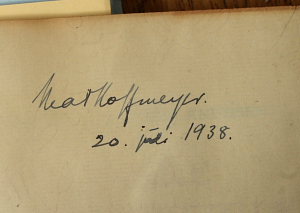 Mat Hoffmeyer.
20. júli 1938.